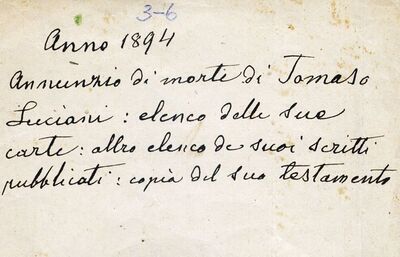 3-6
Anno 1894
Annunzio di morte di Tomaso
Luciani : elenco delle sue
carte : altro elenco de suoi scritti
pubblicati : copia del suo testamento